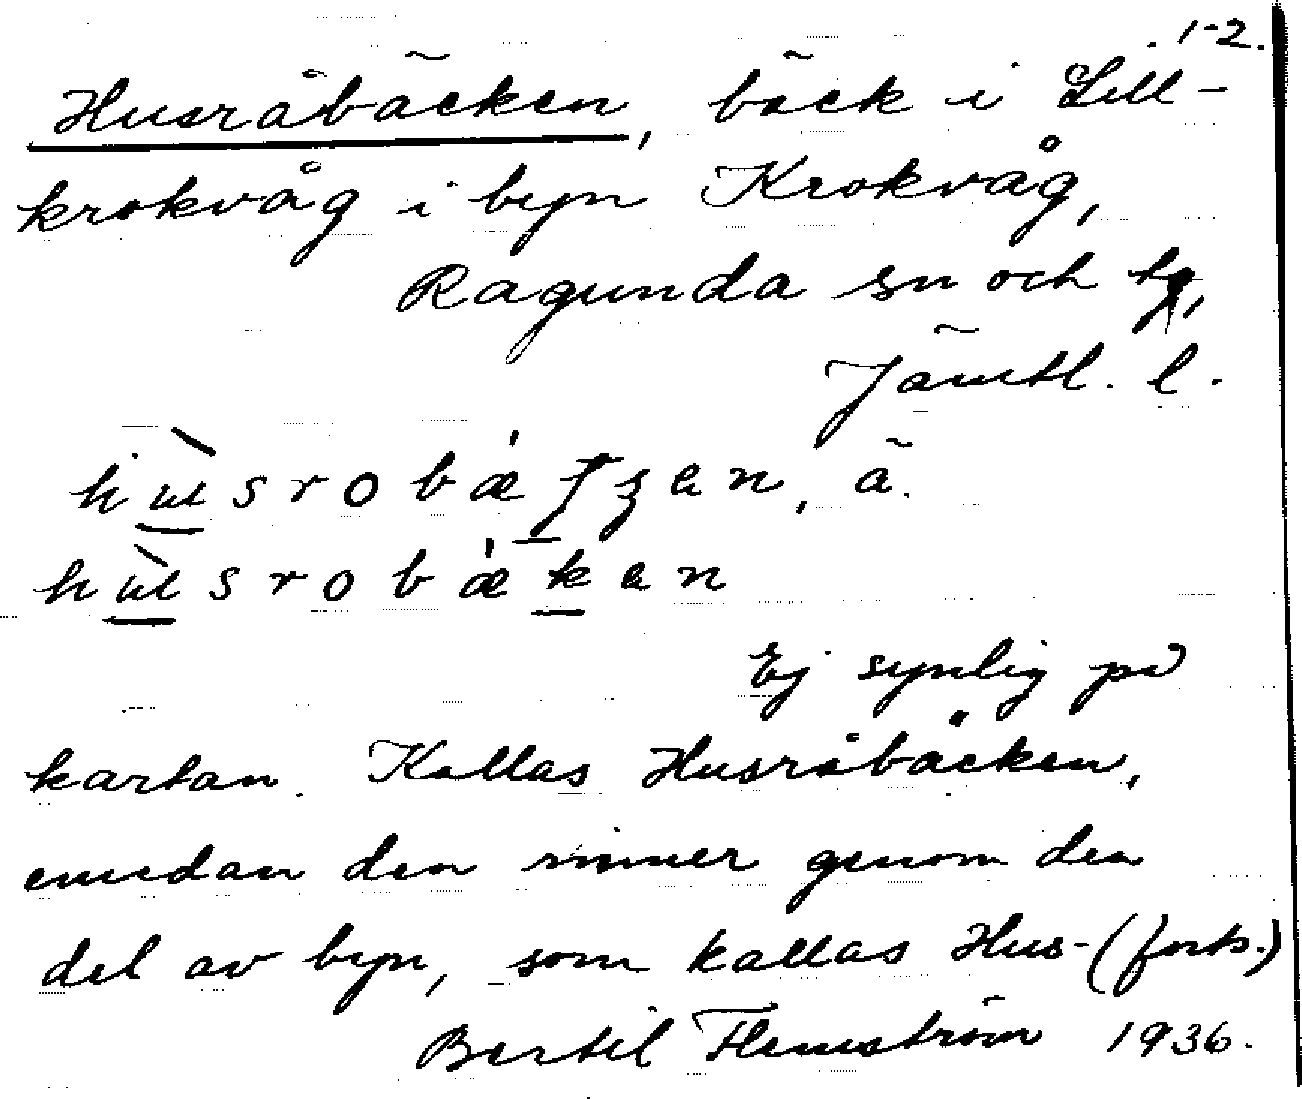 1-2.
Husråbäcken, bäck i Lill-
krokvåg i byn Krokvåg,
Ragunda sn och tg,
Jämtl. l.
husrobæ ʃʒen, ä.
husrobæken
Ej synlig på
kartan. Kallas Husråbäcken,
emedan den rinner genom den
del av byn, som kallas Hus- (forts.)
Bertil Flemström 1936.